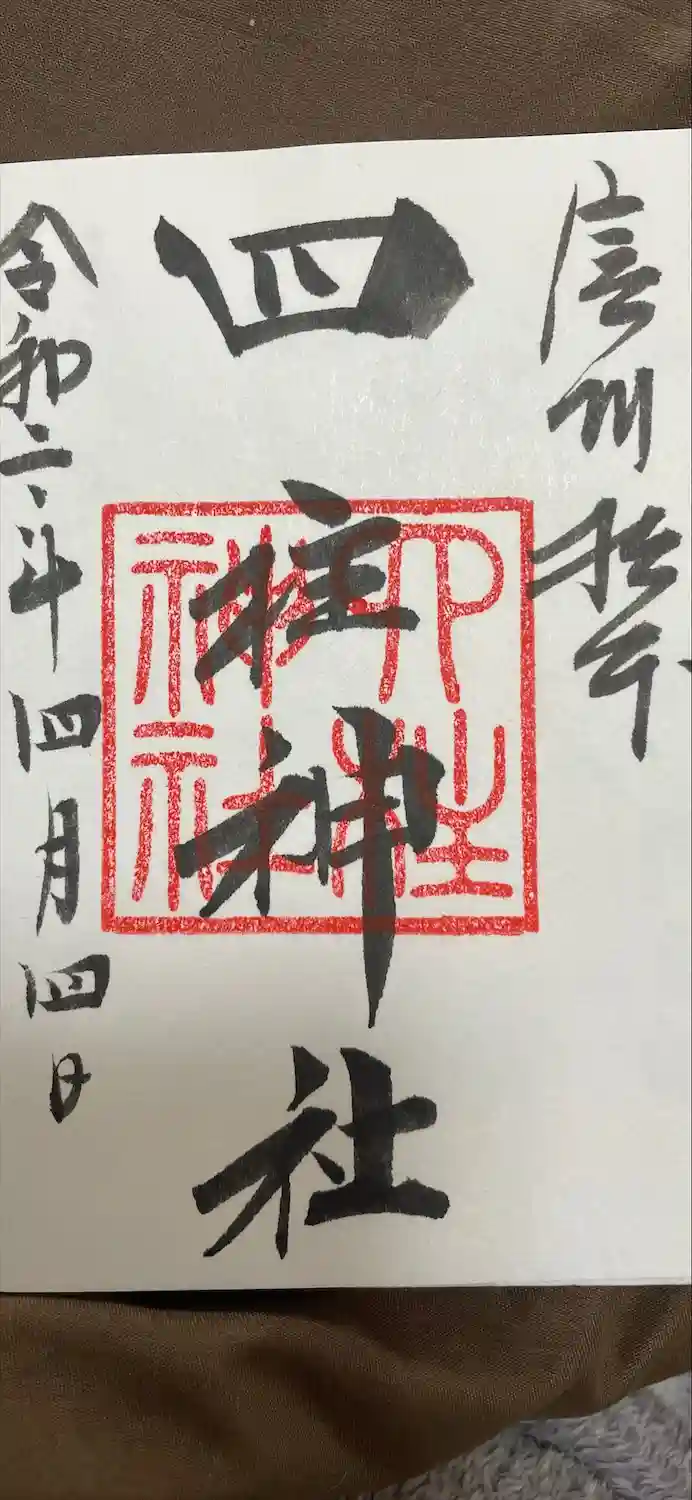 信州松本
四柱神社
四柱
神社
令和二年四月四日